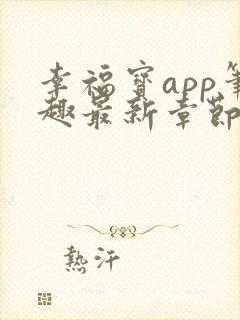 幸福寶app筆
趣最新章節
熱汗